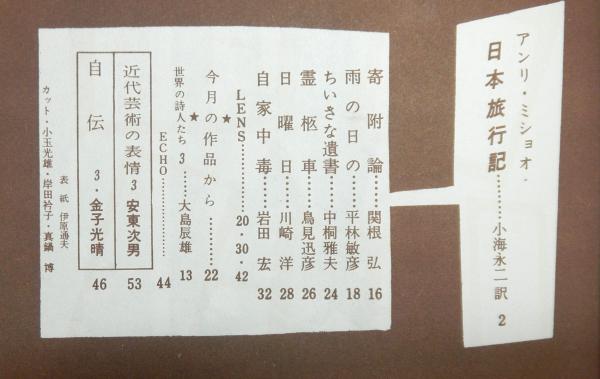 アンリ・ミショオ・
日本旅行記………小海永二訳 2
寄附論………関根弘 16
雨の日の………平林敏彦 18
ちいさな遺書………中桐雅夫 24
霊柩車………鳥見迅彦 26
日曜日………川崎洋 28
自家中毒………岩田宏 32
LENS………20・30・42
★今月の作品から………22
★世界の詩人たち 3………大島辰雄 13
ECHO………44
近代芸術の表情 3 安東次男 53
自伝 3・金子光晴 46
表紙 伊原通夫
カット・小玉光雄・岸田衿子・真鍋博